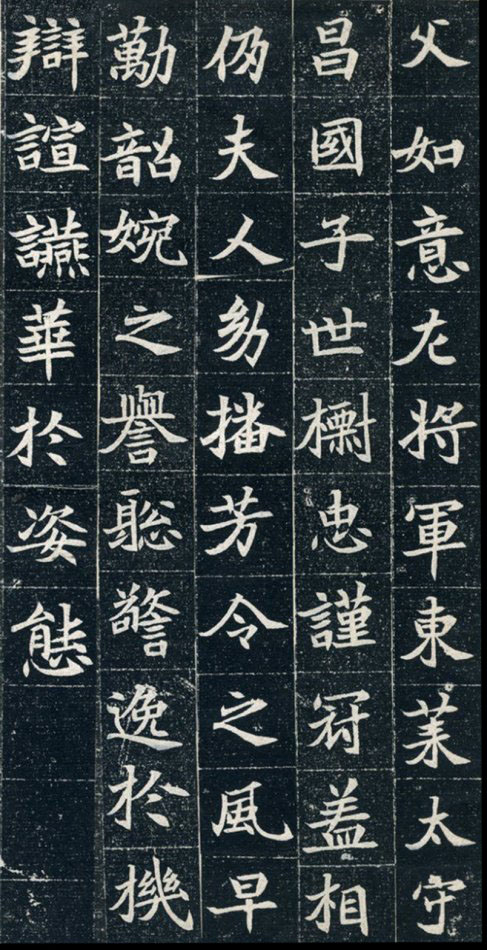 父如意左將軍東萊太守
昌國子世樹忠謹冠盖相
仍夫人幼播芳令之風早
勱韶婉之譽聡警逸於機
辯諠讌華於姿態